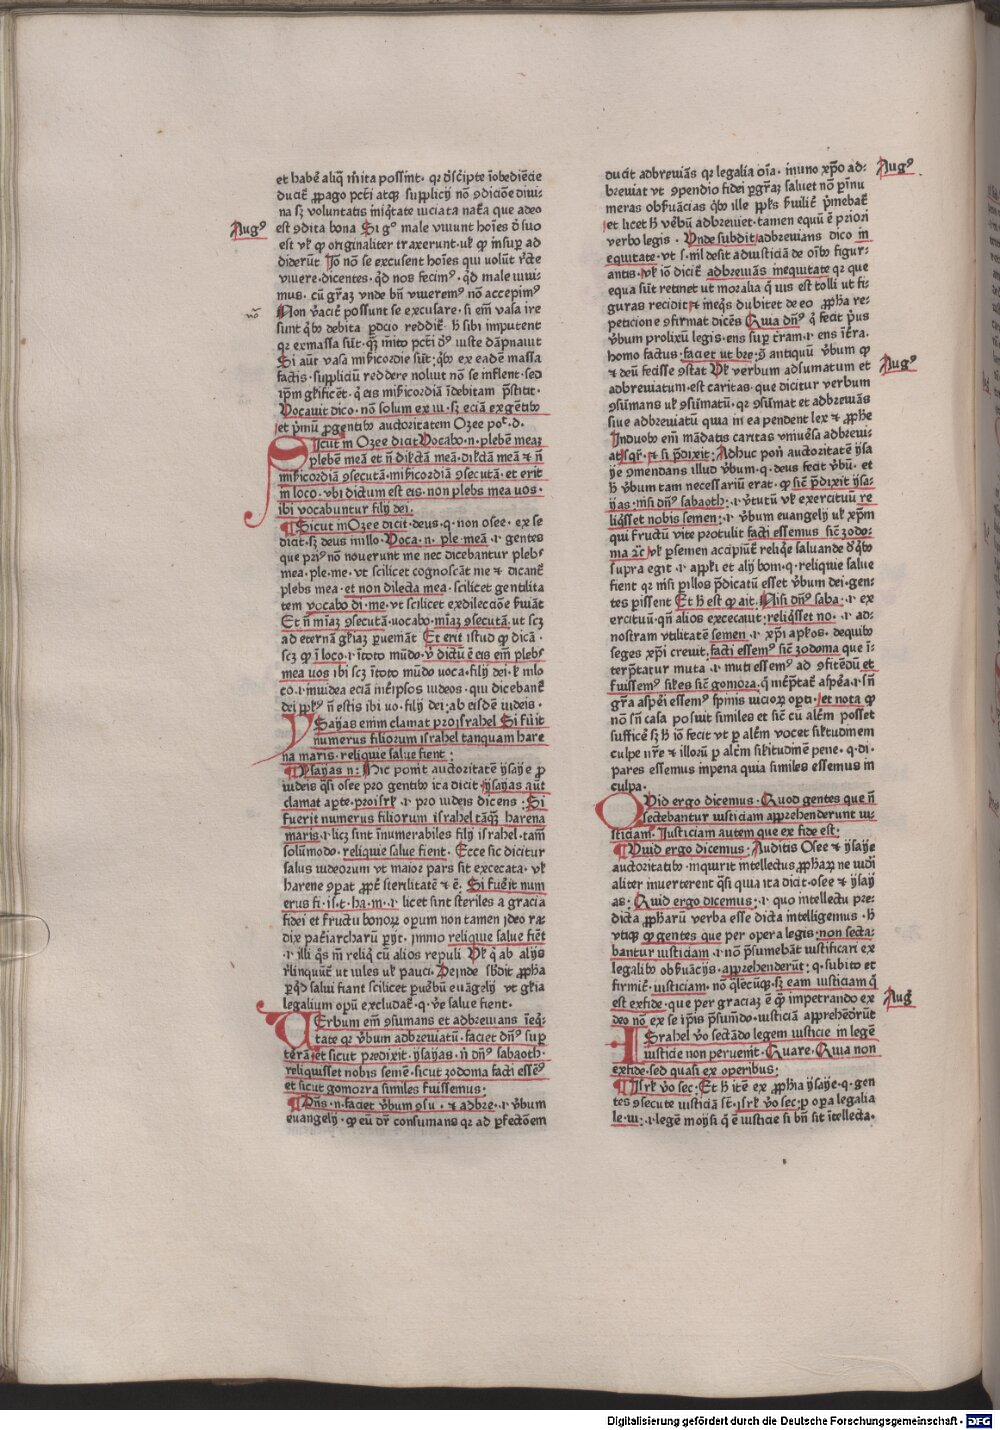 et habēt aliq̄ m̄ita possīnt · qꝛ dſcīpte īobediēcie
ducīt ꝓpago pctī atqꝫ supplicij nō ꝯdicōe diui-
na sꝫ voluntatis iniq̄tate viciata nata que adeo
Aug⁹
est ꝯdita bona Si g° male viuunt hoīes ð suo
est vł ꝙ originaliter traxerunt · vł ꝙ insuꝑ ad
diderūt Jō nō se excusent hoīes qui volūt rc̄te
viuere · dicentes · qð nos fecim⁹ · qð male viui-
mus · cū gr̄aꝫ vnde bn̄ viuerem⁹ nō accepim⁹
nō
Non v̄acit̄ possunt se excusare · si em̄ vasa ire
sunt q̄ib⁹ debita ꝑdicio reddit̄ · h̄ sibi imputent
qꝛ ex massa sūt · q̄ꝫ m̄ito pctī ð⁹ iuste dāpnauit
Si aūt vasa misericordie sūt · q̄ib⁹ ex eadē massa
factis · suppliciū reddere noluit nō se inflent · sed
ip̄m glificēt · q̄ eis misericordiā īdebitam p̄stitit ·
Vocauit dico · nō solum ex iu · sꝫ eciā ex gentib⁹
et p̄mū ꝓ gentib⁹ auctoritatem Ozee po͛ · d ·
Sicut in Ozee dicit Vocabo · n · plebē meaꝫ
plebē meā et n̄ dilectā meā · dilectā meā ⁊ n̄
misericordiā ꝯsecutā · misericordiā ꝯsecutā · et erit
in loco · vbi dictum est eis · non plebs mea vos ·
ibi vocabuntur filij dei ·
Sicut in Ozee dicit · deus · q · non osee · ex se
dicit · sꝫ deus in illo · Voca · n · ple meā · ı · gentes
que pri⁹ nō nouerunt me nec dicebantur plebs
mea · ple · me · vt scilicet cognoscāt me ⁊ dicant̄
plebs mea · et non dilecta mea · scilicet gentilita
tem vocabo di · me · vt scilicet ex dileccōe ẜuiāt
Et n̄ miaꝫ ꝯsecutā · vocabo · miaꝫ ꝯsecutā · ut scꝫ
ad eternā gl̄iaꝫ ꝑueniāt Et erit istud ꝙ dicā ·
scꝫ ꝙ ī loco · ı · ī toto mūdo · v̄ dictū ē eis em̄ plebs
mea vos ibi scꝫ ī toto mūdo voca · filij dei · ł in lo
co · ı · in iudea eciā in eripsos iudeos · qui dicebant̄
dei pplus n̄ estis ibi vo · filij dei · ab eisdē iudeis ·
YSayas enim clamat pro israhel Si fūit
numerus filiorum israhel tanquam hare
na maris · reliquie salue fient ·
Ysayas n · Hic ponit auctoritatē ysaye ꝓ
iudeis q̄si osee pro gentib⁹ ita dicit ysayas aūt
clamat apte · pro isrł · ı · pro iudeis dicens · Si
fuerit numerus filiorum israhel tāqꝫ harena
maris · ı · licꝫ sint īnumerabiles filij israhel · tam̄
solūmodo · reliquie salue fient · Ecce sic dicitur
salus iudeorum vt maior pars sit excecata · vł
harene ꝯpat̄ ꝓpt̄ sterilitatē ⁊ ē · Si fuērit num
erus fi · is · t · ha · m · ı · licet sint steriles a gracia
fidei et fructu bonoꝝ operum non tamen jdeo ra-
dix patriarcharū ꝑijt · jmmo reliquie salue fiēt
· ı · illi q̄s in̄ reliq̄ cū alios repuli Vł q̄ ab alijs
r̄linquūt̄ ut viles vł pauci · Deinde sb̄dit ꝓpha
ꝑ qð salui fiant scilicet ꝑ uēbū euāgelij vt gl̄ia
legalium opū excludat̄ · q · ve salue fient ·
VErbum em̄ ꝯsumans et adbreuians ī eq̄-
tate qꝛ v̄bum adbreuiatū · faciet dn̄s suꝑ
terā et sicut predixit · ysayas · n̄ dn̄s sabaoth ·
reliquisset nobis semē · sicut zodoma facti essem⁹
et sicut gomorra similes fuissemus ·
Dn̄s · n · faciet v̄bum ꝯsu · ⁊ adbre · ı · v̄bum
euangelij · ꝙ eū dr̄ consumans qꝛ ad ꝑfectōem
Aug⁹
ducit adbreuiās qꝛ legalia oīa · in uno xp̄o ad-
breuiat vt ꝯpendio fidei ꝑ gr̄aꝫ saluet nō ꝑ innu
meras obẜuācias q̄ib⁹ ille pplus ẜuilit̄ p̄mebat̄
et licet h̄ v̄ebū adbreuiet · tamen equū ē priori
verbo legis · Vnde subdit adbreuians dico in
equitate · vt s · nil desit ad iusticiā de oīb⁹ figur-
antis · vł iō dicit̄ adbreuiās in equitate qꝛ que
equa sūt retinet ut moralia q̄ uis est tolli ut fi-
guras recidit ⁊ ineqs dubitet de eo ꝓpha re-
peticione ꝯfirmat dicēs Quia dn̄s q̄ fecit p̄us
v̄bum prolixū legis · ens suꝑ t̄ram · ı · ens īt̄ra ·
homo factus · faciet ut bre · s̄ antiquū v̄bum ꝙ
Aug⁹
⁊ deū fecisse ꝯstat Vł verbum adsumatum et
adbreuiatum · est caritas · que dicitur verbum
ꝯsūmans vł ꝯsūmatū · qꝛ ꝯsūmat et adbreuiās
siue adbreuiatū quia in ea pendent lex ⁊ ꝓphe
In duob⁹ em̄ mādatis caritas vniuēsa adbreui-
at̄ sqr̄ · ⁊ si p̄dixit · Adhuc poīt auctoritatē ysa
ye ꝯmendans illud v̄bum · q · deus fecit v̄bū · et
h̄ v̄bum tam necessariū erat · ꝙ sic̄ p̄dixit ysa-
yas · nisi dn̄s sabaoth · ı · v̄tutū vł exercituū re
liq̄sset nobis semen · ı · v̄bum euangelij vł xp̄m
qui fructū vite protulit facti essemus sic̄ zodo-
ma ⁊c vł ꝑ semen accipiūt̄ reliq̄e saluande ð q̄ib⁹
supra egit · ı · apłi et alij boni · q · reliquie salue
fient qꝛ nisi ꝑ illos p̄dicatū esset v̄bum dei · gen-
tes ꝑissent Et h̄ est ꝙ ait · Nisi dn̄s saba · ı · ex
ercituū · qn̄ alios excecauit · reliq̄sset no · ı · ad-
nostram vtilitatē semen · ı · xp̄i aplos · de quib⁹
seges xp̄i creuit · facti essem⁹ sic̄ zodoma que ī-
terp̄tatur muta · ı · muti essem⁹ ad ꝯfitēdū et
fuissem⁹ siłes sic̄ gomora · q̄ int̄p̄tat̄ aspēa · ı · sn̄
gr̄a aspēi essem⁹ spīnis vicioꝝ opti · et nota ꝙ
nō sn̄ casa posuit similes et sic̄ cū alēm posset
sufficē sꝫ h̄ iō fecit vt ꝑ alēm vocet silitudinem
culpe nr̄e ⁊ illorū ꝑ alēm silitudinē pene · q · di-
pares essemus in pena quia similes essemus in
culpa ·
QVid ergo dicemus · Quod gentes que n̄
sectebantur iusticiam apprehenderunt iu-
sticiam · Justiciam autem que ex fide est ·
Quid ergo dicemus · Auditis Osee ⁊ ysaye
auctoritatib⁹ · inquirit intellectus ꝓphaꝝ ne iudī
aliter inuerterent q̄si quia ita dicit · osee ⁊ ysay
as · Quid ergo dicemus · ı · quo intellectu pre-
dicta ꝓpharū verba esse dicta intelligemus · h̄
vtiqꝫ ꝙ gentes que per opera legis · non secta-
bantur iusticiam · ı · nō p̄sumebāt iustificari ex
legalib⁹ obẜuācijs · apprehenderūt · q · subito et
firmit̄ · iusticiam · nō q̄lecūqꝫ · sꝫ eam iusticiam q̄
Aug⁹
est ex fide · que per graciaꝫ ē ꝙ impetrando ex
deo nō ex se ip̄is p̄sumdo · iusticiā apprehēdrūt
ISrahel v̄o sectādo legem iusticie in legē
iusticie non peruenit · Quare · Quia non
ex fide · sed quasi ex operibus ·
Isrł v̄o sec · Et h̄ itē ex ꝓphia ysaye · q · gen
tes ꝯsecute iusticiā sē · jsrł v̄o sec · ꝑ oꝑa legalia
le · iu · ı · legē moysi q̄ ē iusticie si bn̄ sit ītellecta ·
Digitalisierung gefördert durch die Deutsche Forschungsgemeinschaft · DFG